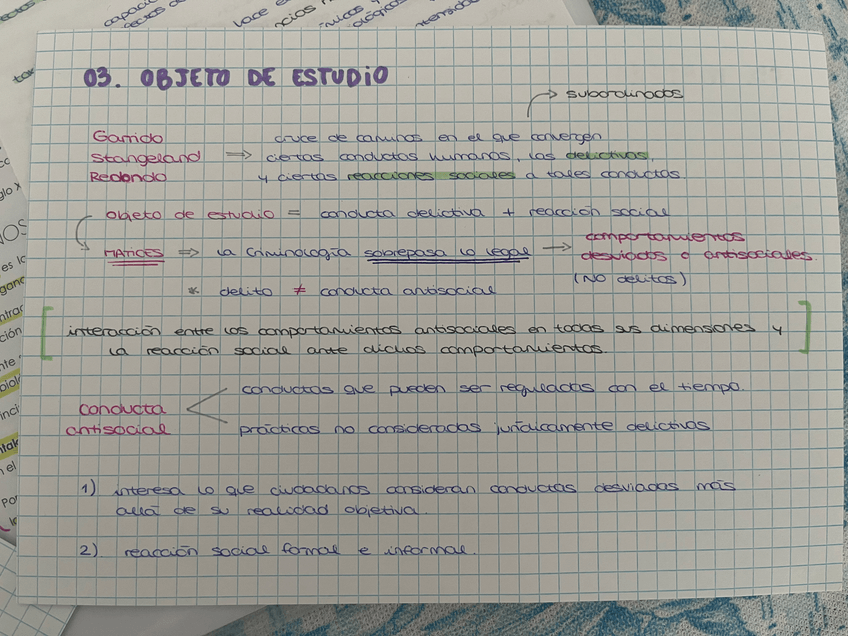 03. OBJETO DE ESTUDIO
subordinados
Garrido
Stangeland
Redondo
⇒
cruce de caminos en el que convergen
ciertas conductas humanas, las delictivas,
y ciertas reacciones sociales a tales conductas
objeto de estudio = conducta delictiva + reacción social
MATICES ⇒ la Criminología sobrepasa lo legal → comportamientos
desviados o antisociales.
(NO delitos)
* delito ≠ conducta antisocial
[interacción entre los comportamientos antisociales en todas sus dimensiones y
la reacción social ante dichos comportamientos.]
conducta
antisocial
conductas que pueden ser reguladas con el tiempo.
prácticas no consideradas jurídicamente delictivas
1) interesa lo que ciudadanos consideran conductas desviadas más
allá de su realidad objetiva.
2) reacción social formal e informal.